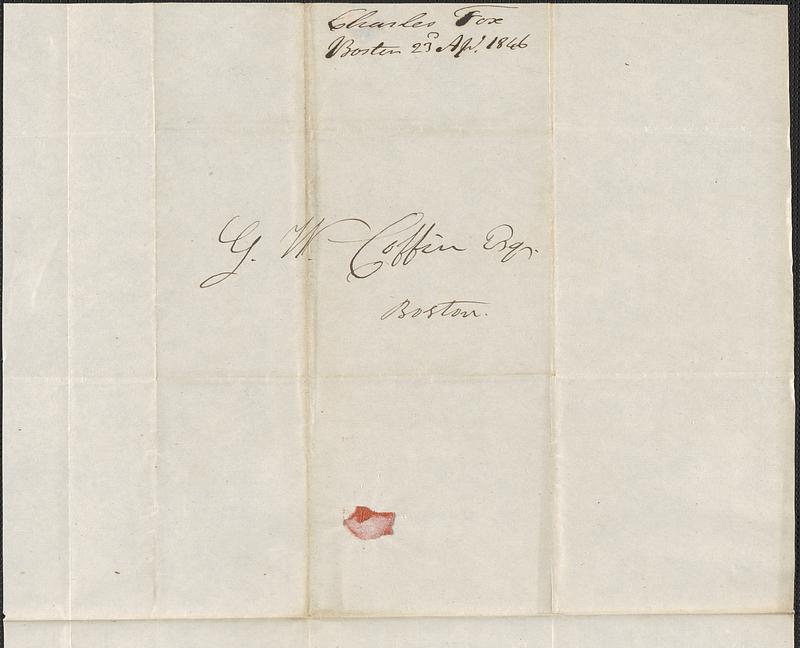 Charles Fox
Boston 23d Apl. 1846
G. W. Coffin Esqr.
Boston.